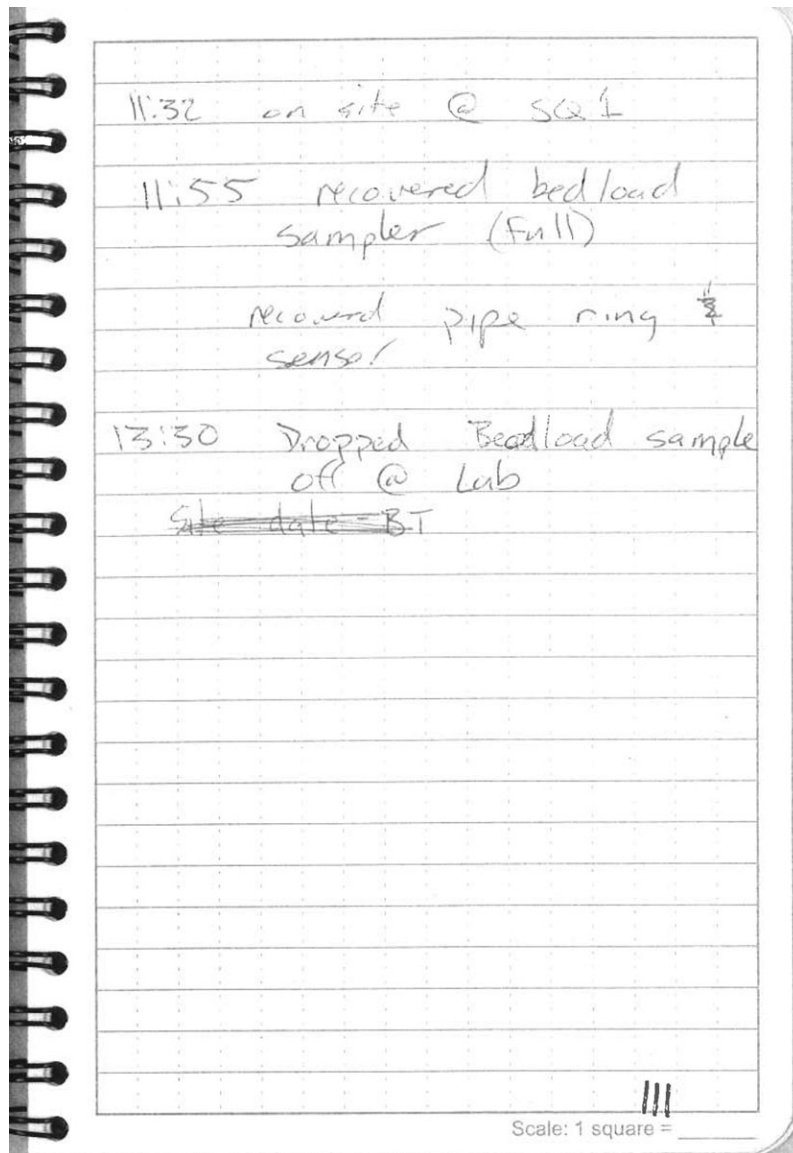 11:32 on site @ SQ1
11:55 recovered bedload
sampler (full)
recovered pipe ring &
sensor
13:30 Dropped Bedload sample
off @ Lab
Site date - BT
111
Scale: 1 square =